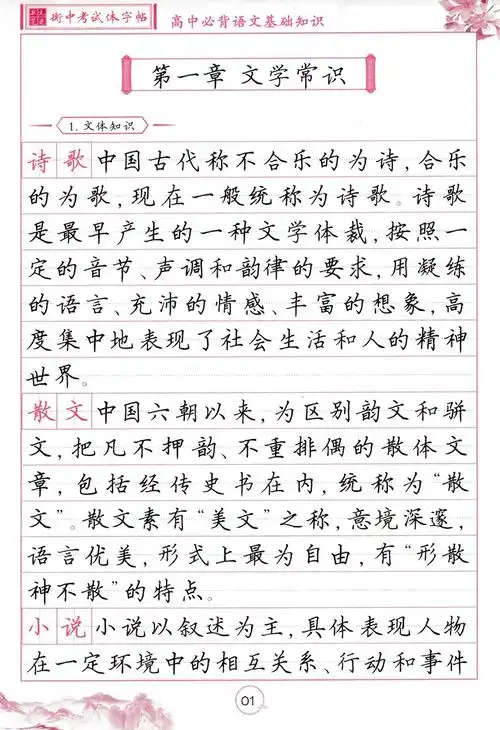 衡中考试体字帖 高中必背语文基础知识
第一章 文学常识
1. 文体知识
诗歌中国古代称不合乐的为诗,合乐
的为歌,现在一般统称为诗歌。诗歌
是最早产生的一种文学体裁,按照一
定的音节、声调和韵律的要求,用凝练
的语言、充沛的情感、丰富的想象,高
度集中地表现了社会生活和人的精神
世界。
散文中国六朝以来,为区别韵文和骈
文,把凡不押韵、不重排偶的散体文
章,包括经传史书在内,统称为“散
文”。散文素有“美文”之称,意境深邃,
语言优美,形式上最为自由,有“形散
神不散”的特点。
小说小说以叙述为主,具体表现人物
在一定环境中的相互关系、行动和事件
01